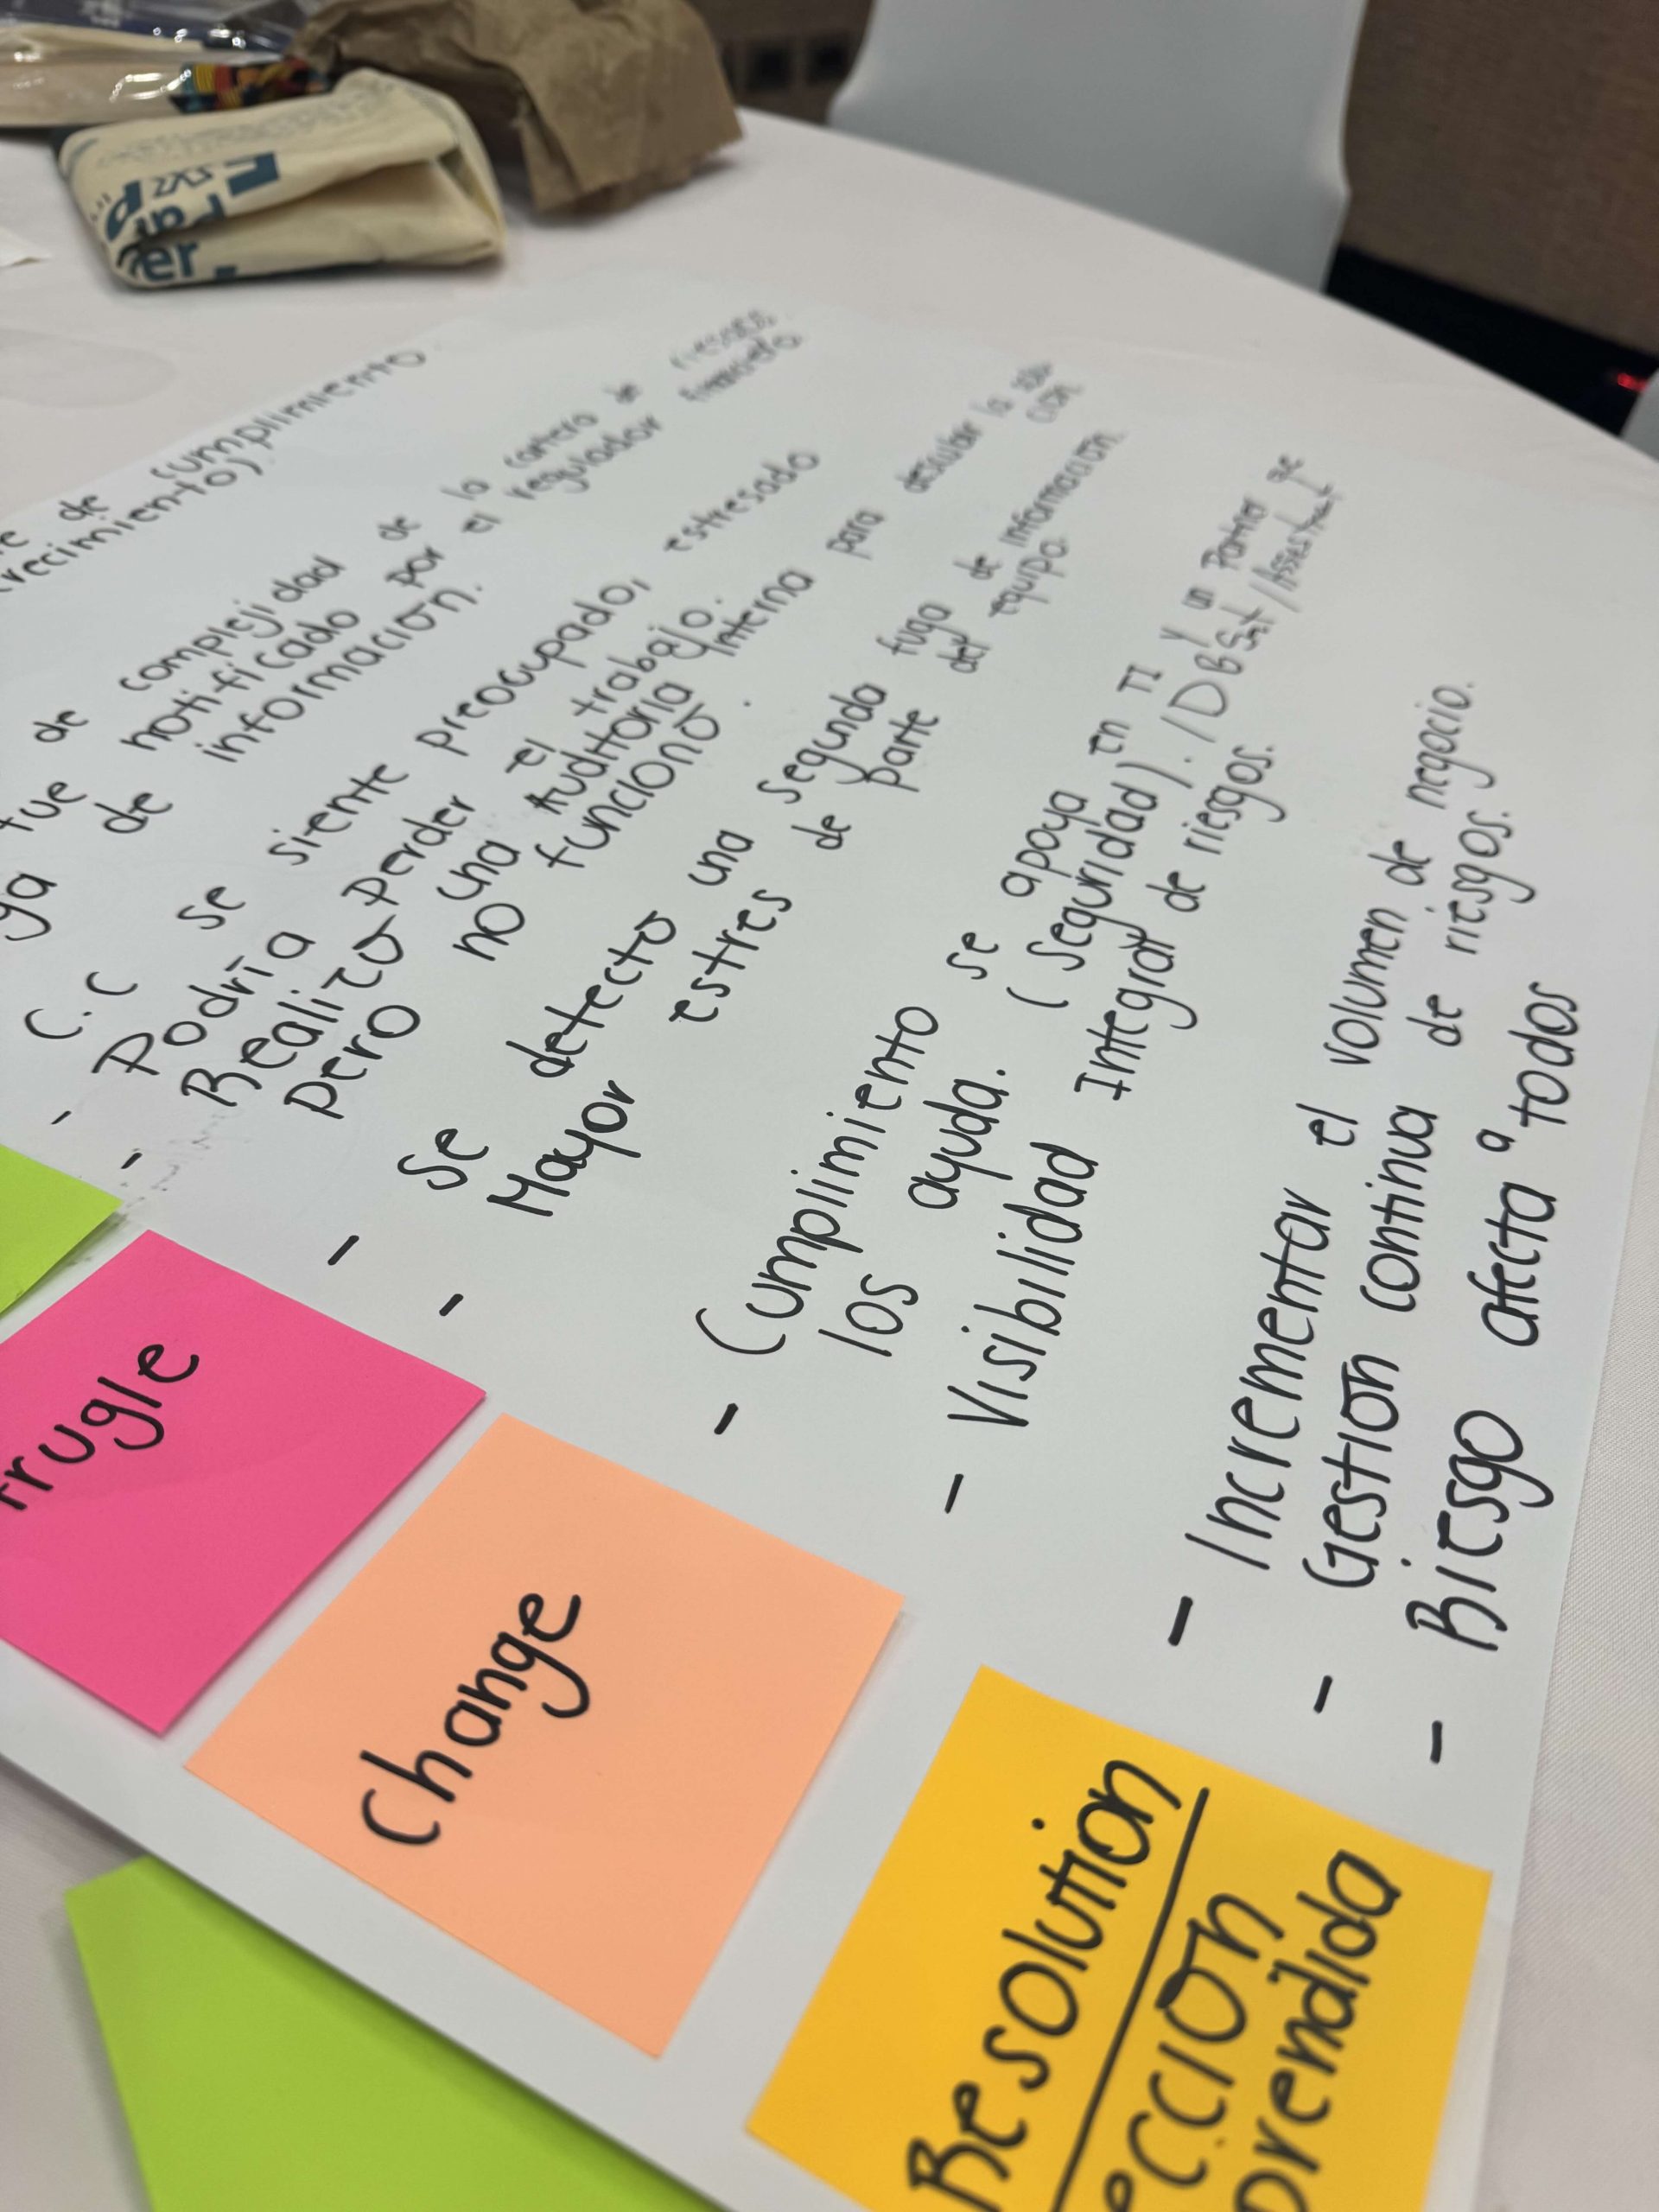 de cumplimiento
recimiento).
fue de complejidad de la cartera de riesgos
ga de notificado por el regulador financiero
información.
C.C se siente preocupado, estresado
- Podría perder el trabajo.
- Realizó una Auditoria Interna para descubrir la
pero no funcionó.
- Se detecto una segunda fuga de información.
- Mayor estres de parte del equipo.
- Cumplimiento se apoya en TI y un Partner que
los ayuda. (Seguridad). /DBSnt/Assestment
- Visibilidad Integral de riesgos.
- Incrementar el volumen de negocio.
- Gestion continua de riesgos.
- Riesgo afecta a "todos
rugle
Change
Resolution
ección
prendida
Par
er